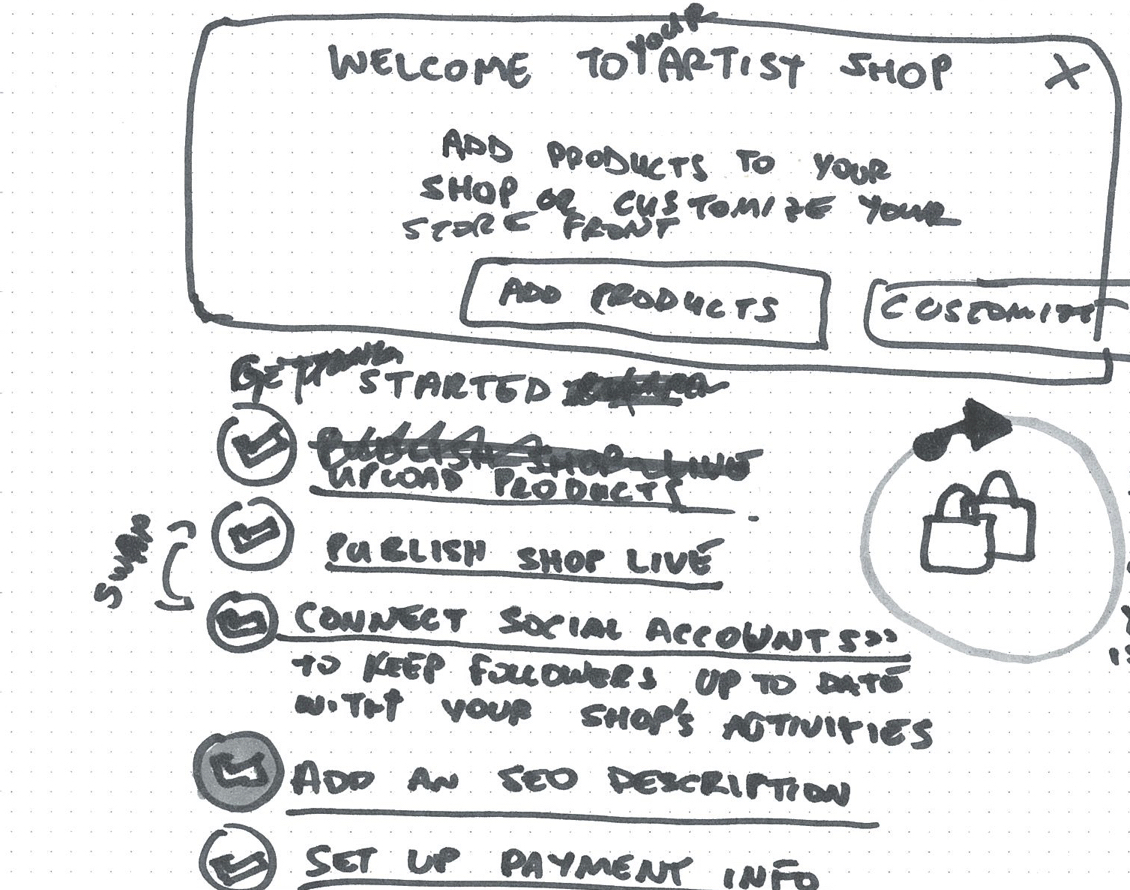 WELCOME TO YOUR ARTIST SHOP X
ADD PRODUCTS TO YOUR
SHOP OR CUSTOMIZE YOUR
STORE FRONT
ADD PRODUCTS
CUSTOMIZE
GET STARTED
PUBLISH SHOP LIVE
UPLOAD PRODUCTS
PUBLISH SHOP LIVE
SWAP
CONNECT SOCIAL ACCOUNTS>>
TO KEEP FOLLOWERS UP TO DATE
WITH YOUR SHOP'S ACTIVITIES
ADD AN SEO DESCRIPTION
SET UP PAYMENT INFO